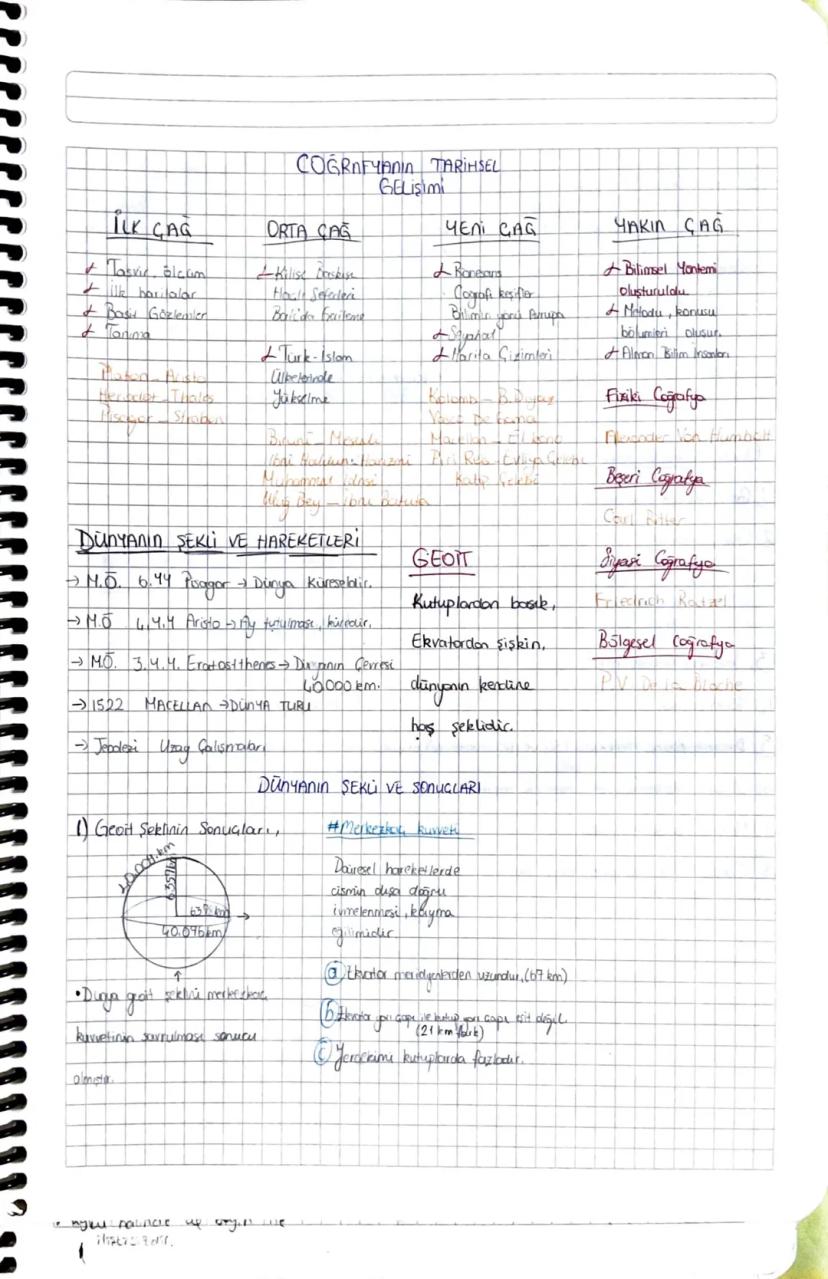 COĞRAFYANIN TARİHSEL
GELişimi
İLK ÇAĞ
Tasvir - ölçüm
ilk haritalar
Basit Gözlemler
Tanıma
Platon - Aristo
Herodot - Thales
Pisagor - Strabon
ORTA ÇAĞ
Kilise Baskısı
Haçlı Seferleri
Batı'da Gerileme
Türk-İslam
Ülkelerinde
Yükselme
Biruni - Mesudi
İbni Haldun - Harzemi
Muhammed İdrisi
Uluğ Bey - İbni Batuta
YENİ ÇAĞ
Rönesans
Coğrafi keşifler
Bilimin yönü Avrupa
Seyahat
Harita Çizimleri
Kolomb - B. Diyaz
Vasco De Gama
Macellan - El Kano
Piri Reis - Evliya Çelebi
Katip Çelebi
YAKIN ÇAĞ
Bilimsel Yöntemi
oluşturuldu
Metodu, konusu
bölümleri oluşur.
Alman Bilim İnsanları
Fiziki Coğrafya
Alexander Von Humbolt
Beşeri Coğrafya
Carl Ritter
Siyasi Coğrafya
Friedrich Ratzel
Bölgesel Coğrafya
P.V De la Blache
DÜNYANIN ŞEKLİ VE HAREKETLERİ
→ M.Ö. 6.YY Pisagor → Dünya Küreseldir.
→ M.Ö 4.Y.Y Aristo → Ay tutulması, küredir.
→ MÖ. 3.Y.Y. Eratostthenes → Dünyanın Çevresi
40000 km.
→ 1522 MACELLAN → DÜNYA TURU
→ Jeodezi Uzay Çalışmaları
GEOİT
Kutuplardan basık,
Ekvatordan şişkin,
dünyanın kendine
has şeklidir.
DÜNYANIN ŞEKLİ VE SONUÇLARI
1) Geoit Şeklinin Sonuçları,
40.076km
• Dünya geoit şeklini merkezkaç
kuvvetinin savrulması sonucu
almıştır.
#Merkezkaç kuvveti
Dairesel hareketlerde
cismin dışa doğru
ivmelenmesi, kayma
eğilimidir.
a Ekvator meridyenlerden uzundur. (67 km)
b Ekvator yarı çapı ile kutup yarı çapı eşit değil.
(21 km fark)
c Yerçekimi kutuplarda fazladır.